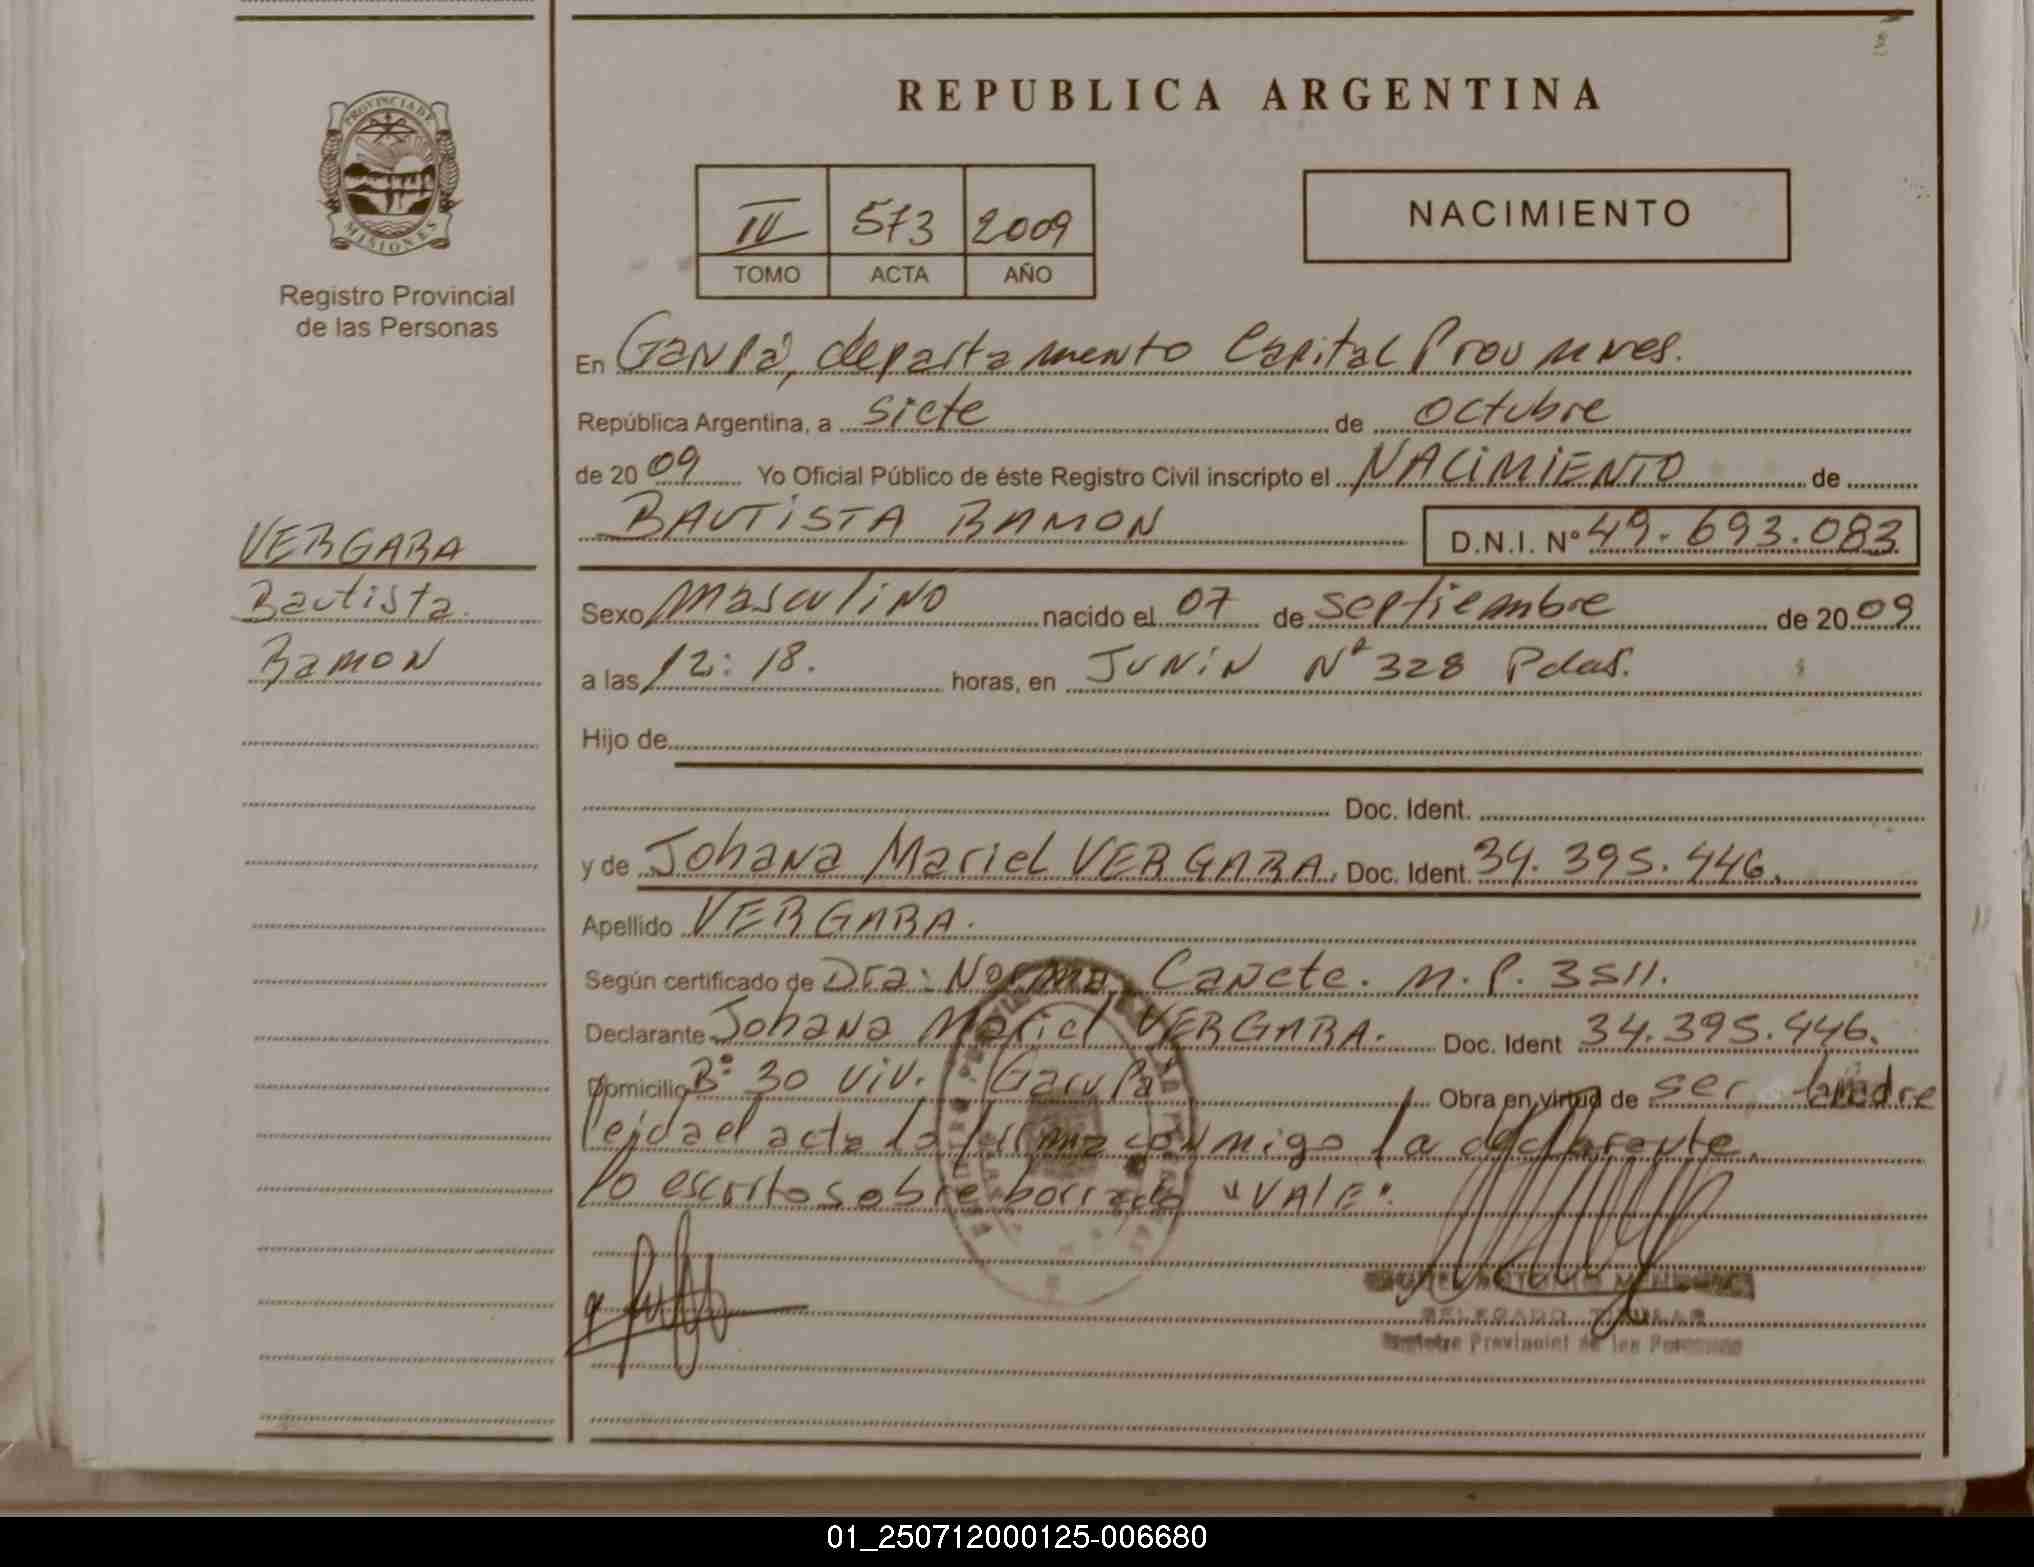 REPUBLICA ARGENTINA
PROVINCIA DE
MISIONES
Registro Provincial
de las Personas
573 2009
TOMO ACTA AÑO
NACIMIENTO
En Garupá, departamento Capital Prov Mnes.
República Argentina, a siete de octubre
de 2009 Yo Oficial Público de éste Registro Civil inscripto el NACIMIENTO de
BAUTISTA RAMON D.N.I. Nº 49.693.083
VERGARA
Bautista
Ramon
Sexo masculino nacido el 07 de septiembre de 2009
a las 12:18. horas, en JUNIN Nº 328 Pdas.
Hijo de
Doc. Ident.
y de Johana Mariel VERGARA. Doc. Ident. 34.395.446.
Apellido VERGARA.
Según certificado de Dra: Norma Cañete. M.P. 3511.
Declarante Johana Mariel VERGARA. Doc. Ident 34.395.446.
Domicilio Bº 30 viv. Garupá Obra en virtud de ser la madre
leida el acta la firma conmigo la declarante.
lo escrito sobre borrado "VALE".
DELEGADO TITULAR
Registro Provincial de las Personas
01_250712000125-006680